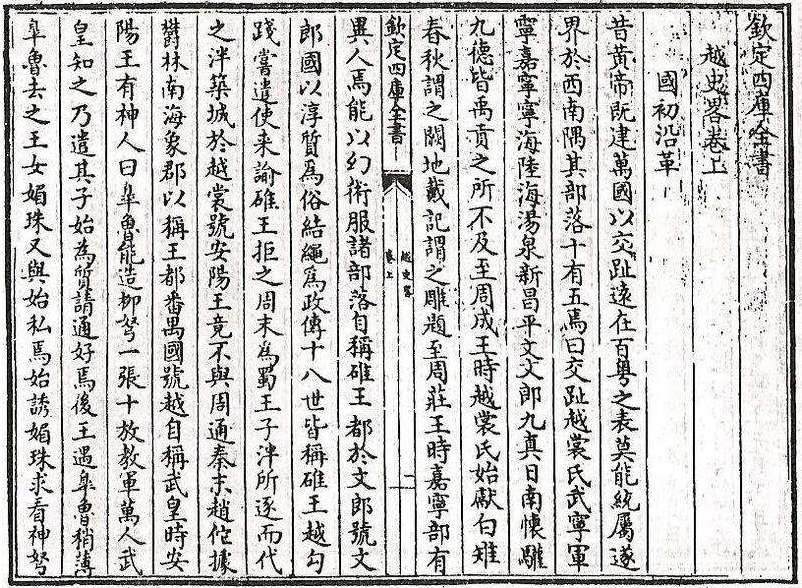 欽定四庫全書
越史畧卷上
國初沿革
昔黃帝既建萬國以交趾逺在百粤之表莫能統屬遂
界於西南隅其部落十有五焉曰交趾越裳氏武寧軍
寧嘉寧寧海陸海湯泉新昌平文文郎九真日南懷驩
九德皆禹貢之所不及至周成王時越裳氏始獻白雉
春秋謂之闕地戴記謂之雕題至周莊王時嘉寧部有
欽定四庫全書
越史畧
卷上
一
異人焉能以幻術服諸部落自稱碓王都於文郎號文
郎國以淳質爲俗結繩爲政傳十八世皆稱碓王越勾
踐嘗遣使来諭碓王拒之周末為蜀王子泮所逐而代
之泮築城於越裳號安陽王竟不與周通秦末趙佗據
欝林南海象郡以稱王都番禺國號越自稱武皇時安
陽王有神人曰臯魯能造柳弩一張十放教軍萬人武
皇知之乃遣其子始為質請通好焉後王遇臯魯稍薄
臯魯去之王女媚珠又與始私焉始誘媚珠求看神弩